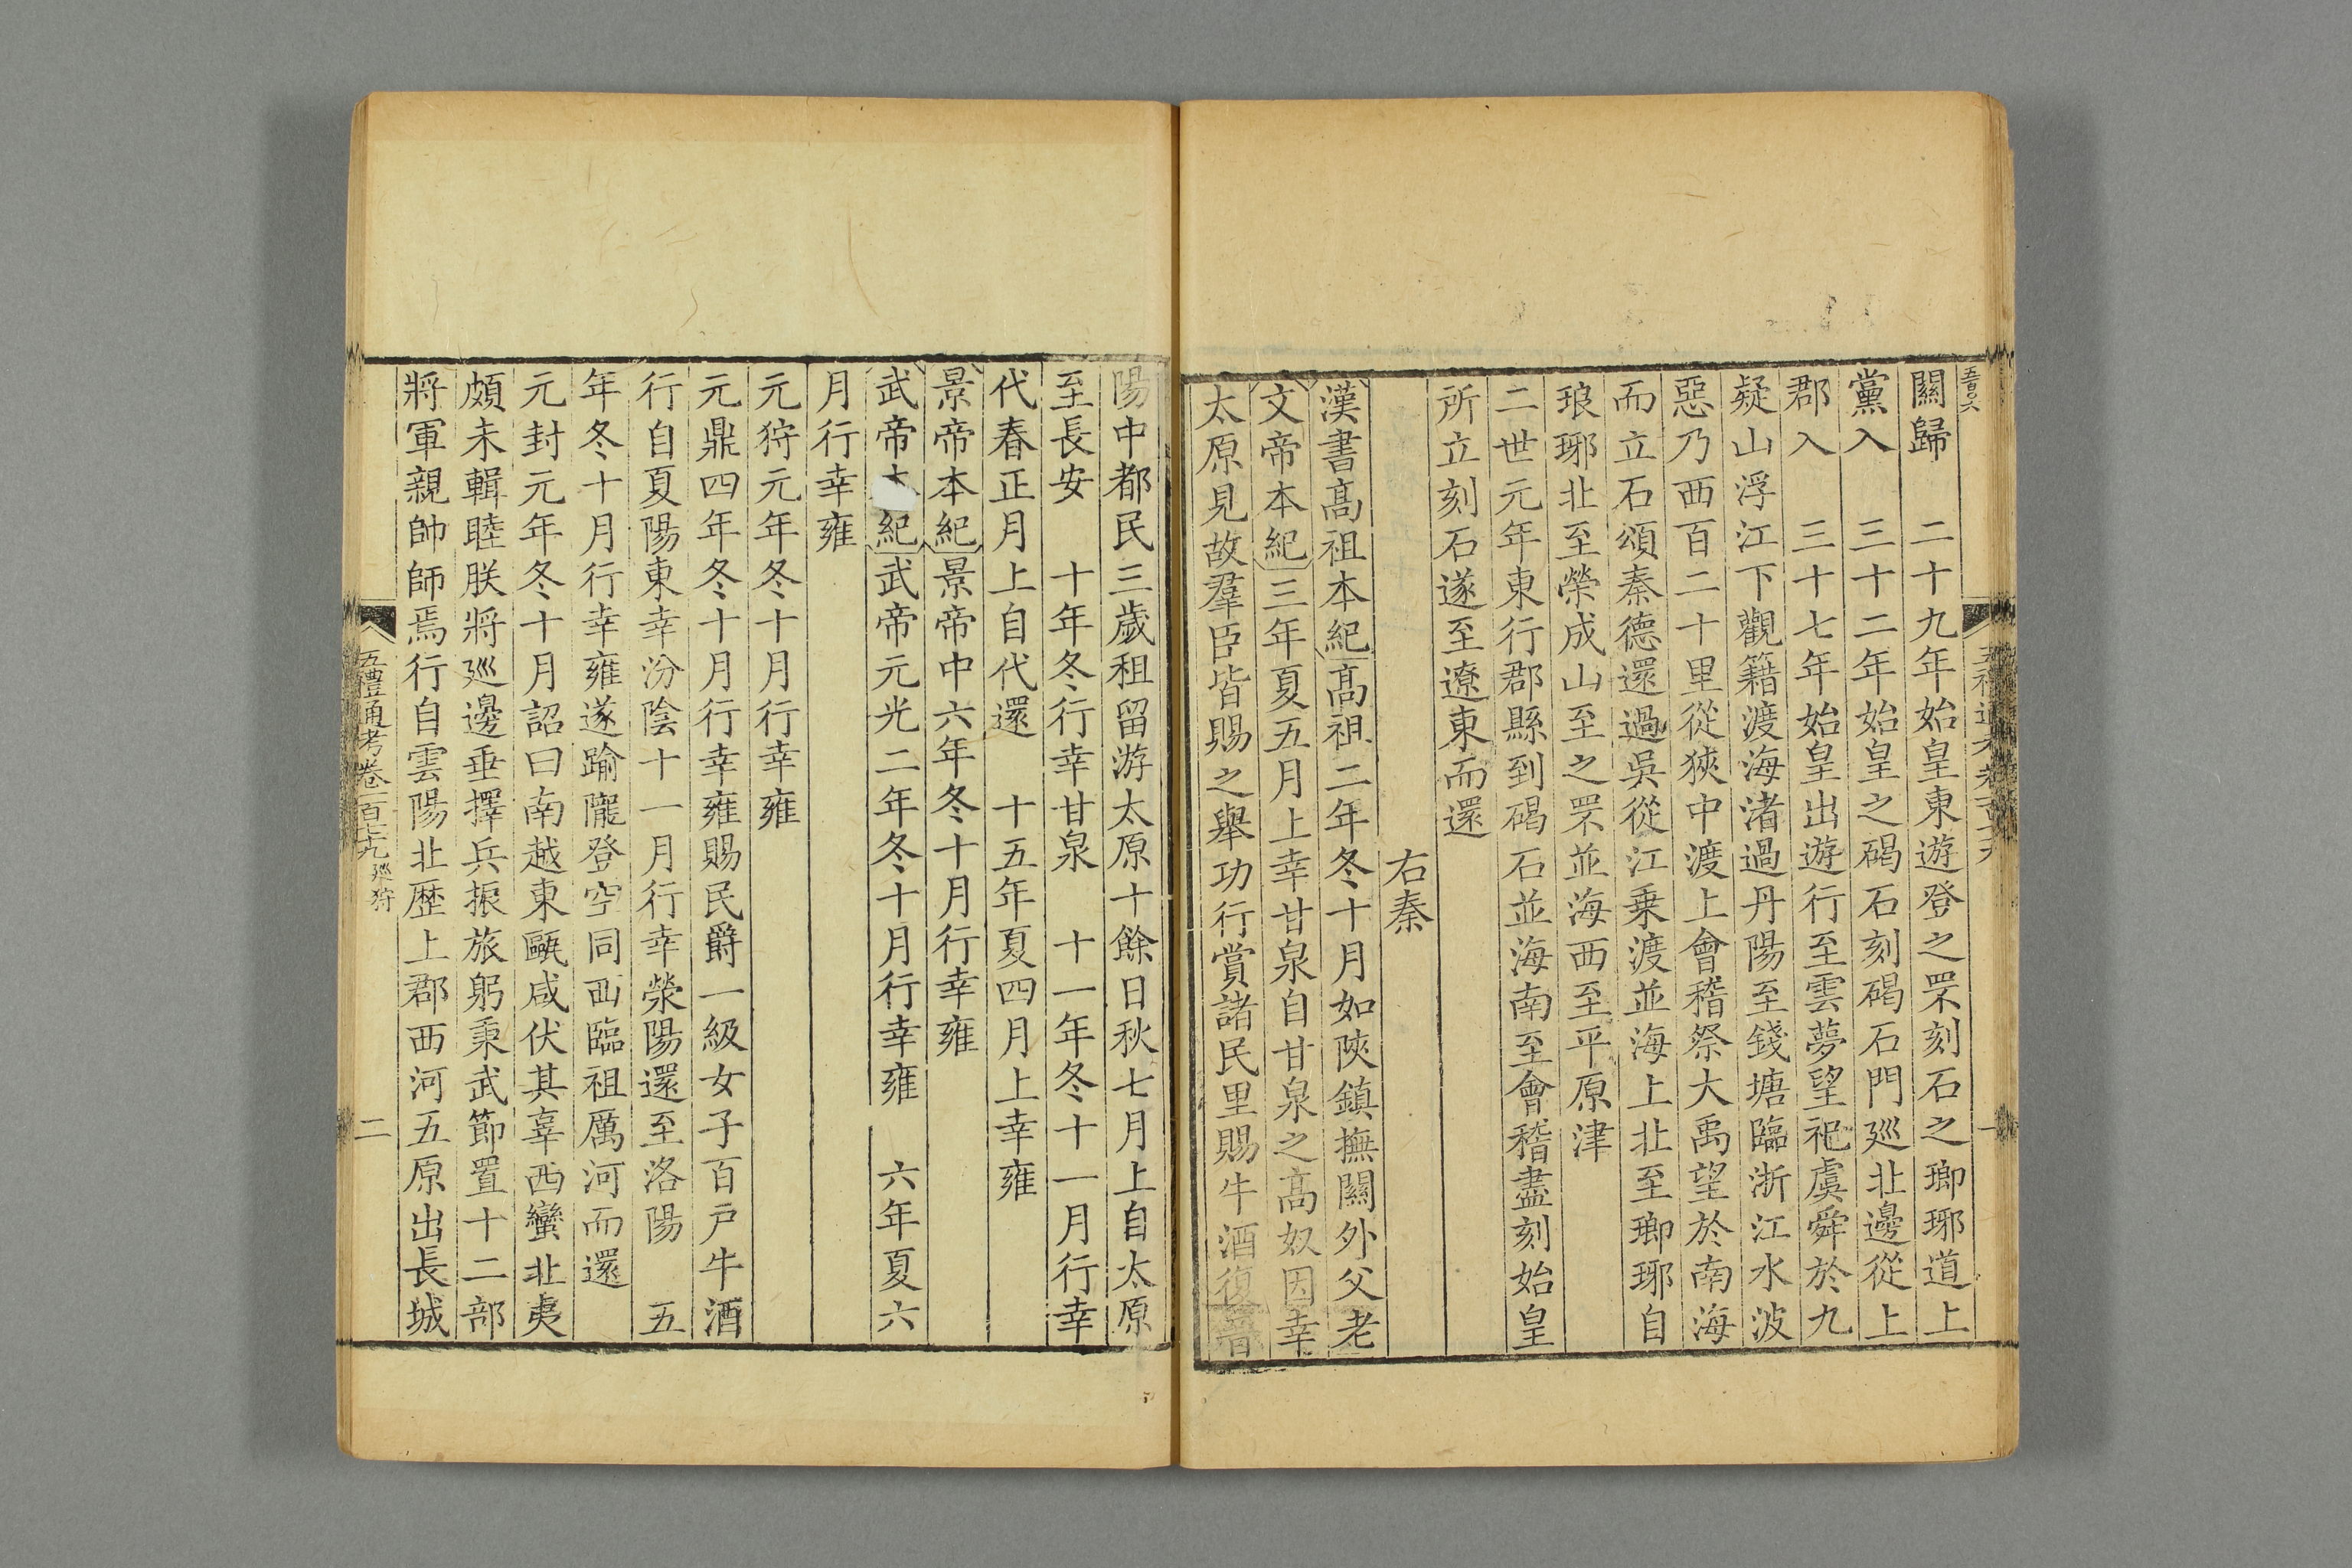 五百六
關歸　二十九年始皇東遊登之罘刻石之瑯琊道上
黨入　三十二年始皇之碣石刻碣石門巡北邊從上
郡入　三十七年始皇出遊行至雲夢望祀虞舜於九
疑山浮江下觀籍渡海渚過丹陽至錢塘臨浙江水波
惡乃西百二十里從狹中渡上會稽祭大禹望於南海
而立石頌秦德還過吳從江乗渡並海上北至瑯琊自
琅琊北至榮成山至之罘並海西至平原津
二世元年東行郡縣到碣石並海南至會稽盡刻始皇
所立刻石遂至遼東而還
右秦
漢書髙祖本紀髙祖二年冬十月如陝鎮撫關外父老
文帝本紀三年夏五月上幸甘泉自甘泉之髙奴因幸
太原見故羣臣皆賜之舉功行賞諸民里賜牛酒復晉
陽中都民三歲租留游太原十餘日秋七月上自太原
至長安　十年冬行幸甘泉　十一年冬十一月行幸
代春正月上自代還　十五年夏四月上幸雍
景帝本紀景帝中六年冬十月行幸雍
武帝紀武帝元光二年冬十月行幸雍　六年夏六
月行幸雍
元狩元年冬十月行幸雍
元鼎四年冬十月行幸雍賜民爵一級女子百戸牛酒
行自夏陽東幸汾陰十一月行幸滎陽還至洛陽　五
年冬十月行幸雍遂踰隴登空同西臨祖厲河而還
元封元年冬十月詔曰南越東甌咸伏其辜西蠻北夷
頗未輯睦朕將巡邊垂擇兵振旅躬秉武節置十二部
將軍親帥師焉行自雲陽北歴上郡西河五原出長城
五禮通考卷一百七十九　巡狩　二